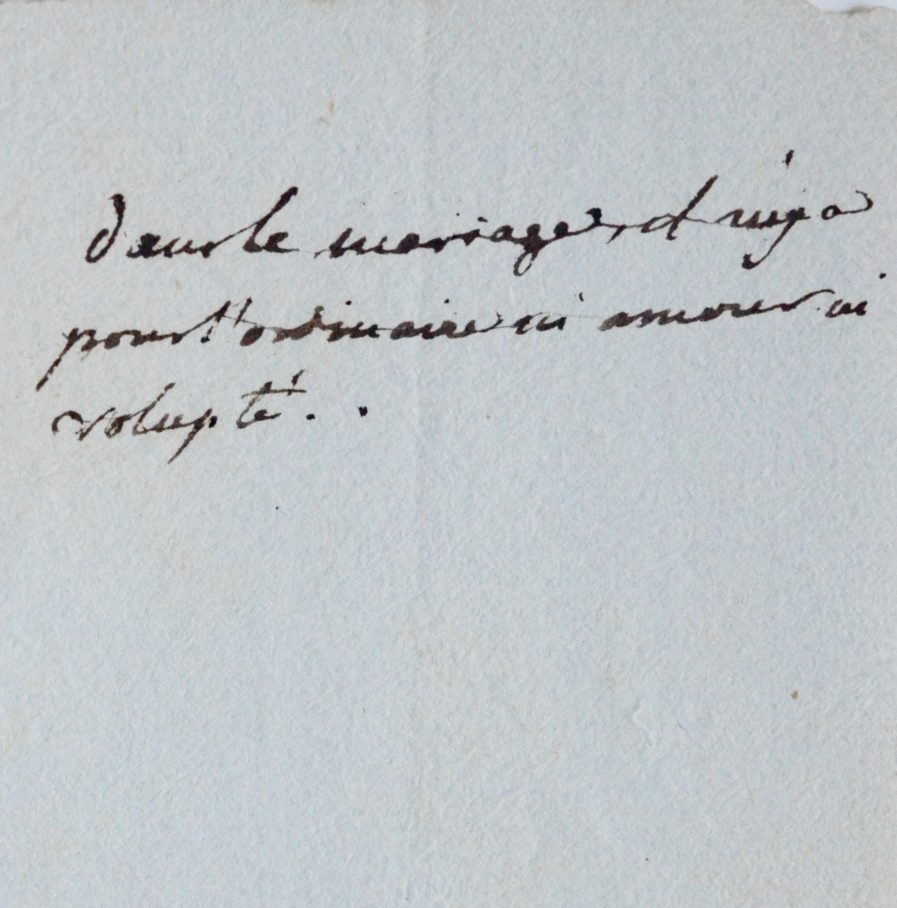 dans le mariage, il n'y a
pour l'ordinaire ni amour ni
volupté. .